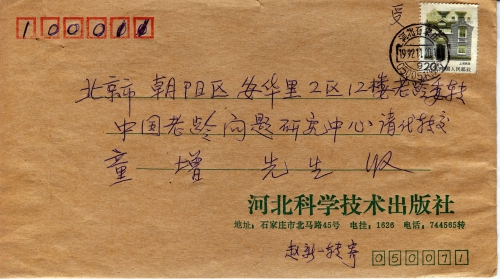 100011
北京市朝阳区安华里2区12楼老龄委转
中国老龄问题研究中心请代转交
童增 先生 收
河北科学技术出版社
地址：石家庄市北马路45号 电挂：1626 电话：744565转
赵新一转寄
050071